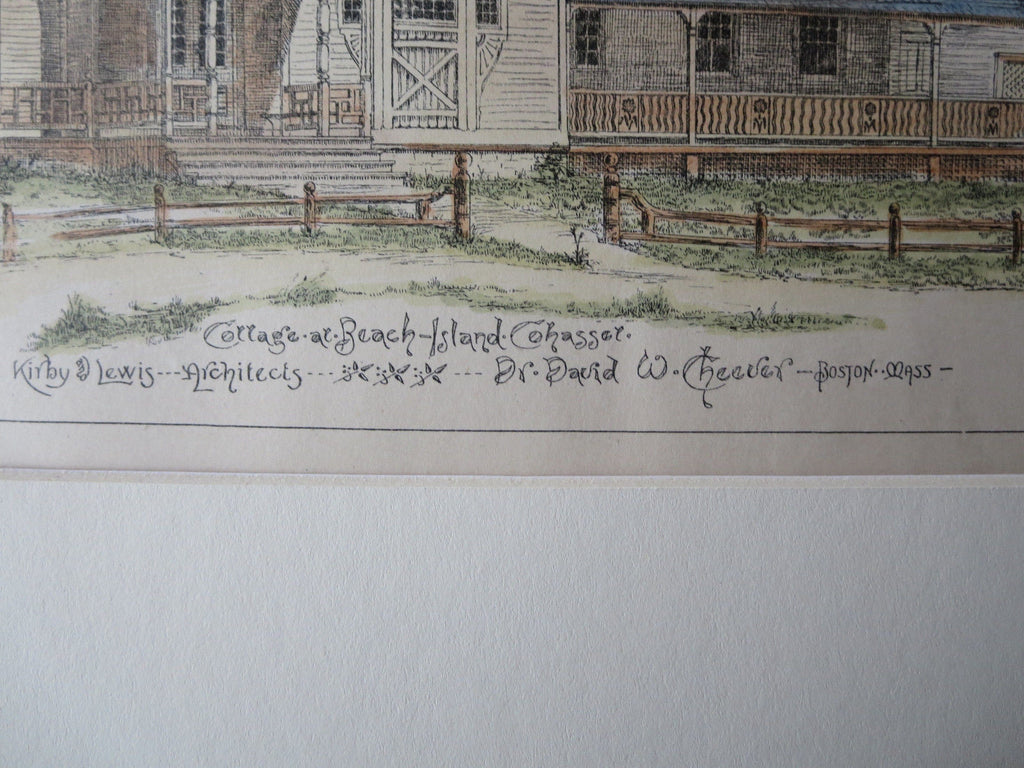 Cottage · at · Beach - Island · Cohasset ·
Kirby & Lewis --- Architects --- --- Dr · David W · Cheever - Boston · · Mass -